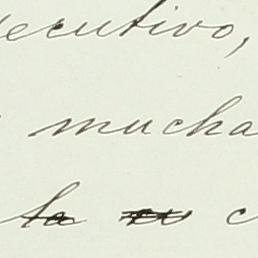 ecutivo,
mucha
la